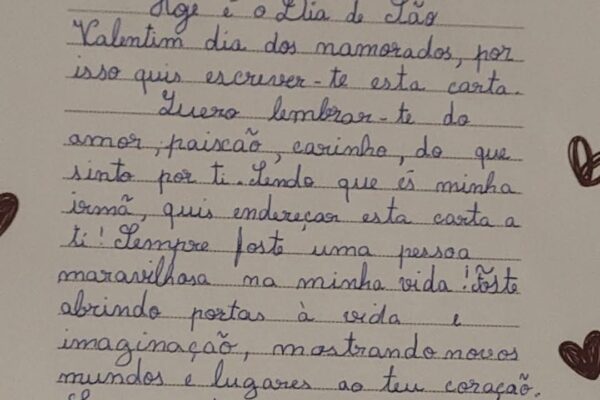 Hoje é o Dia de São
Valentim dia dos namorados, por
isso quis escrever-te esta carta.
Quero lembrar-te do
amor, paixcão, carinho, do que
sinto por ti. Sendo que és minha
irmã, quis endereçar esta carta a
ti! Sempre foste uma pessoa
maravilhosa na minha vida! Foste
abrindo portas à vida e
imaginação, mostrando novos
mundos e lugares ao teu coração.